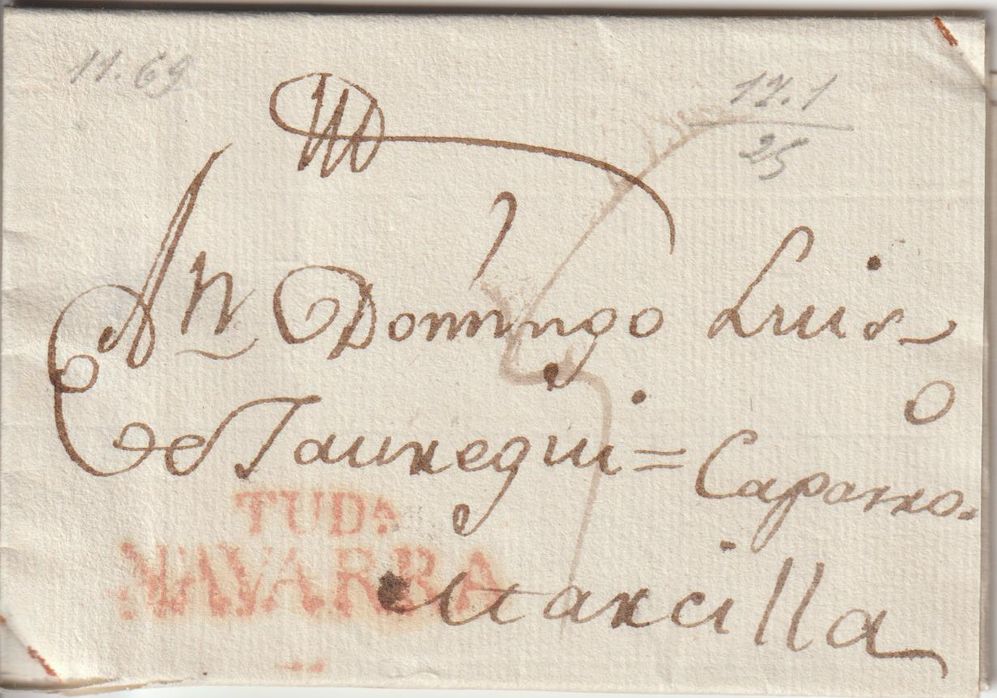 11.69
12.1
25
An Domingo Luis
de Jauregui = Caparro.
o
TUDA
NAVARRA
Marcilla